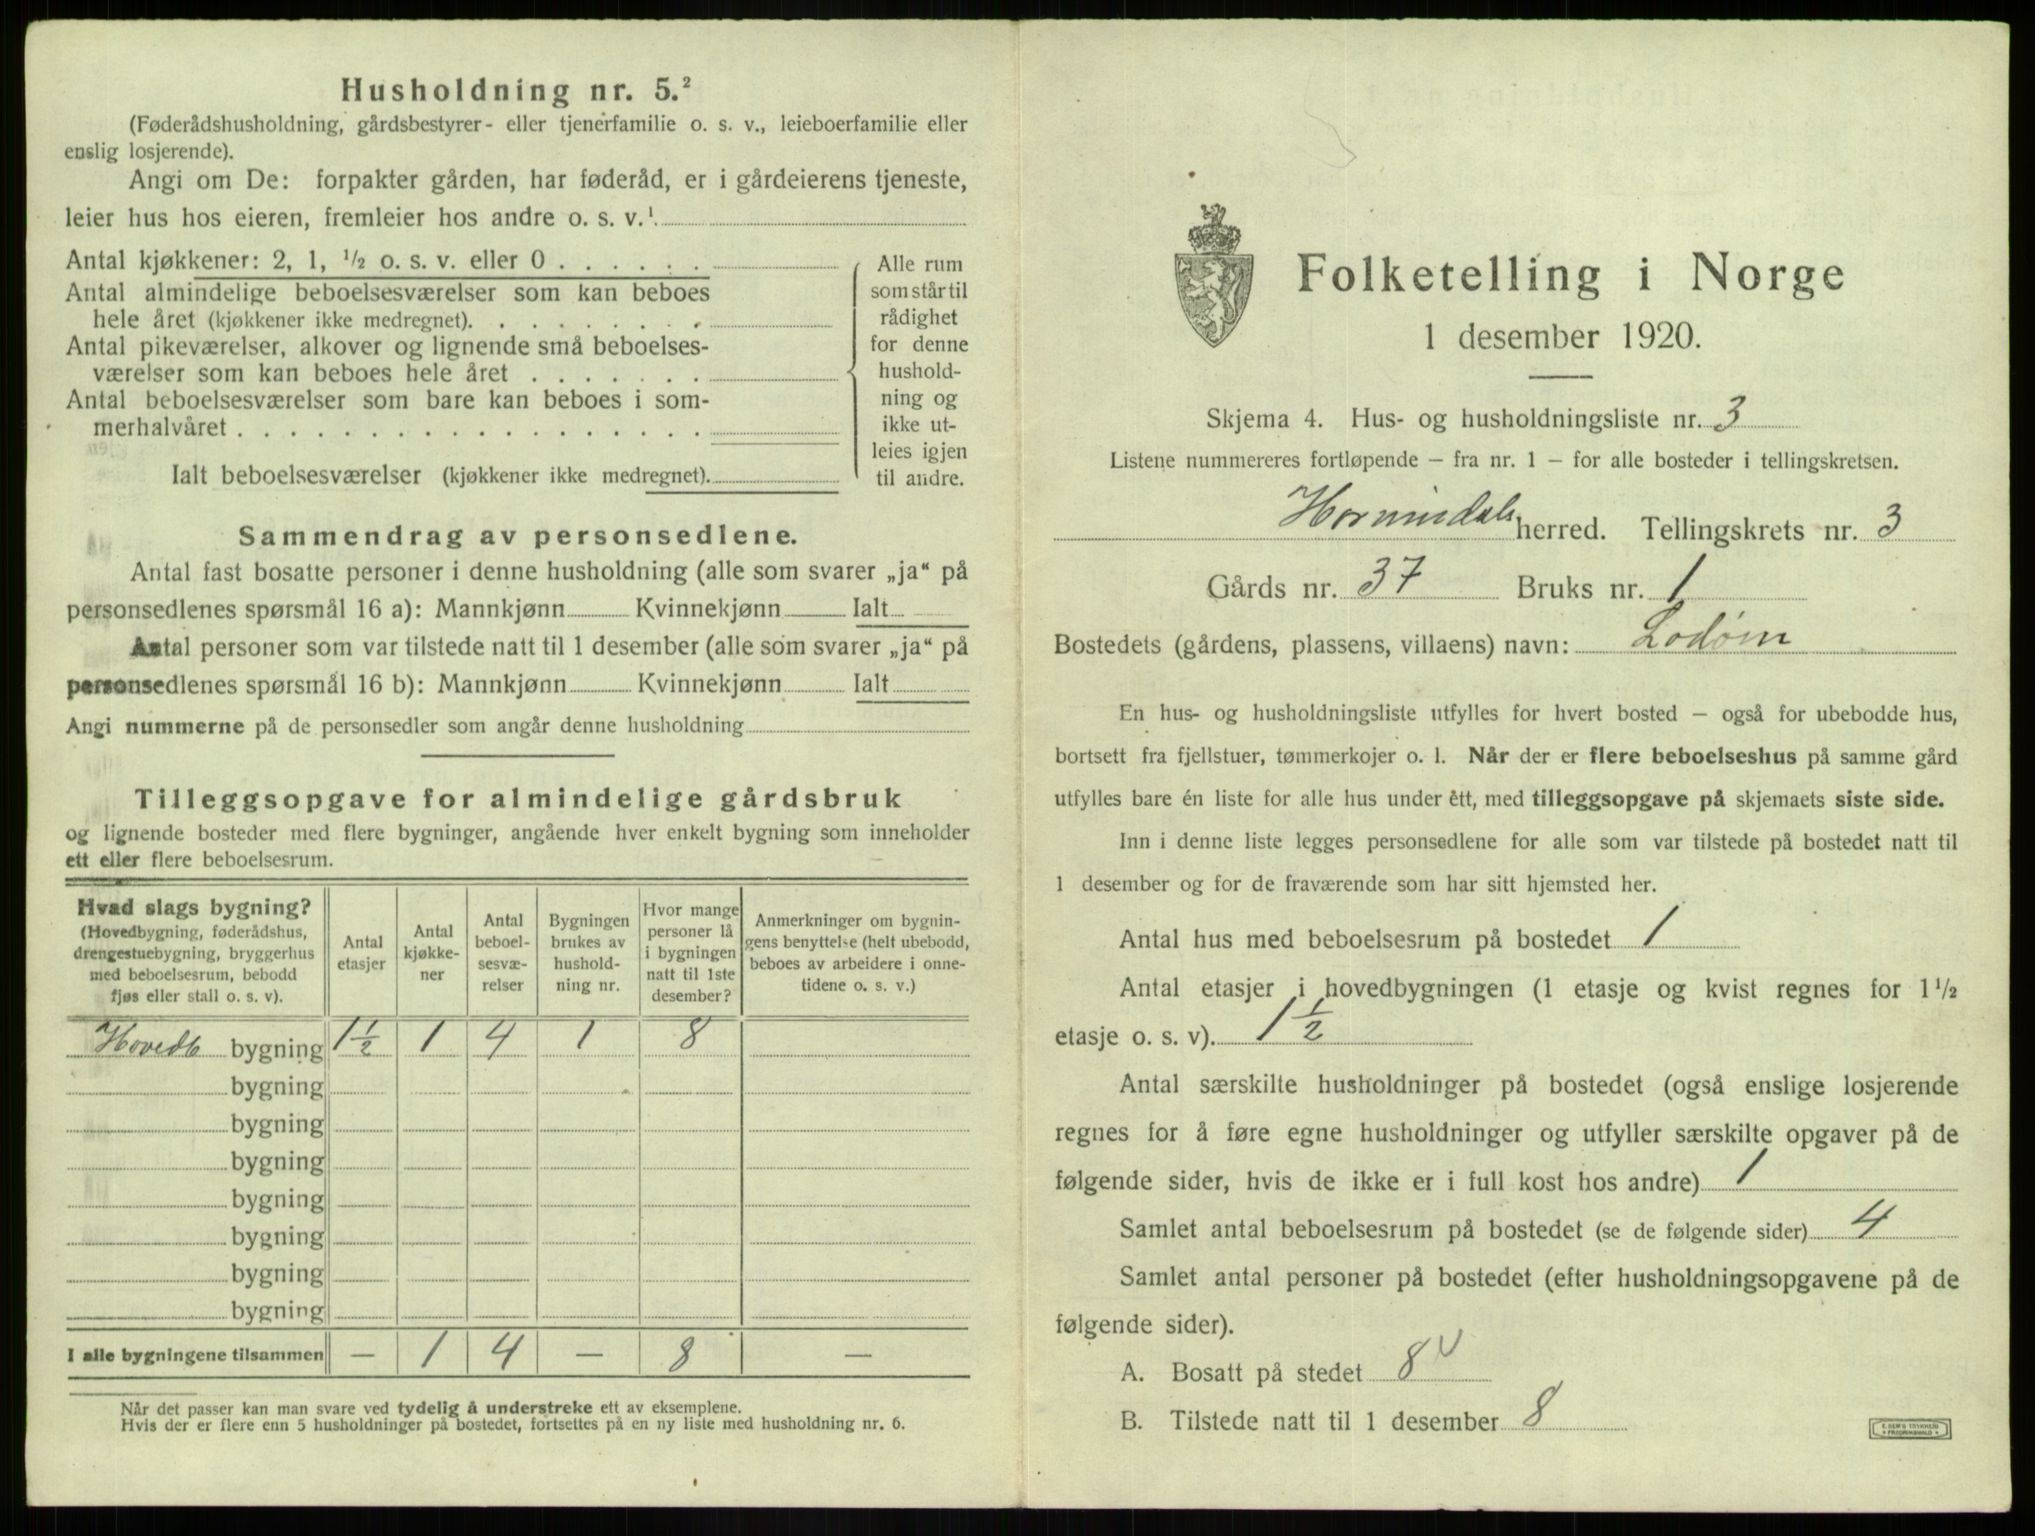 Husholdning nr. 5.²
(Føderådshusholdning, gårdsbestyrer- eller tjenerfamilie o. s. v., leieboerfamilie eller
enslig losjerende).
Angi om De: forpakter gården, har føderåd, er i gårdeierens tjeneste,
leier hus hos eieren, fremleier hos andre o. s. v.¹
Antal kjøkkener: 2, 1, ½ o. s. v. eller 0 . . . . . .
Antal almindelige beboelsesværelser som kan beboes
hele året (kjøkkener ikke medregnet). . . . . . . . .
Antal pikeværelser, alkover og lignende små beboelses-
værelser som kan beboes hele året . . . . . . .
Antal beboelsesværelser som bare kan beboes i som-
merhalvåret . . . . . . . . . . . . . . . . . .
Ialt beboelsesværelser (kjøkkener ikke medregnet).
Alle rum
som står til
rådighet
for denne
hushold-
ning og
ikke ut-
leies igjen
til andre.
Sammendrag av personsedlene.
Antal fast bosatte personer i denne husholdning (alle som svarer „ja“ på
personsedlenes spørsmål 16 a): Mannkjønn Kvinnekjønn Ialt
Antal personer som var tilstede natt til 1 desember (alle som svarer „ja“ på
personsedlenes spørsmål 16 b): Mannkjønn Kvinnekjønn Ialt
Angi nummerne på de personsedler som angår denne husholdning
Tilleggsopgave for almindelige gårdsbruk
og lignende bosteder med flere bygninger, angående hver enkelt bygning som inneholder
ett eller flere beboelsesrum.
Hvad slags bygning?
(Hovedbygning, føderådshus,
drengestuebygning, bryggerhus
med beboelsesrum, bebodd
fjøs eller stall o. s. v).
Antal
etasjer
Antal
kjøkke-
ner
Antal
beboel-
sesvæ-
relser
Bygningen
brukes av
hushold-
ning nr.
Hvor mange
personer lå
i bygningen
natt til 1ste
desember?
Anmerkninger om bygnin-
gens benyttelse (helt ubebodd,
beboes av arbeidere i onne-
tidene o. s. v.)
Hovedb bygning 1½ 1 4 1 8
bygning
bygning
bygning
bygning
bygning
bygning
bygning
I alle bygningene tilsammen — 1 4 — 8 —
Når det passer kan man svare ved tydelig å understreke ett av eksemplene.
Hvis der er flere enn 5 husholdninger på bostedet, fortsettes på en ny liste med husholdning nr. 6.
Folketelling i Norge
1 desember 1920.
Skjema 4. Hus- og husholdningsliste nr. 3
Listene nummereres fortløpende – fra nr. 1 – for alle bosteder i tellingskretsen.
Hornindals herred. Tellingskrets nr. 3
Gårds nr. 37 Bruks nr. 1
Bostedets (gårdens, plassens, villaens) navn: Lodøm
En hus- og husholdningsliste utfylles for hvert bosted – også for ubebodde hus,
bortsett fra fjellstuer, tømmerkojer o. l. Når der er flere beboelseshus på samme gård
utfylles bare én liste for alle hus under ètt, med tilleggsopgave på skjemaets siste side.
Inn i denne liste legges personsedlene for alle som var tilstede på bostedet natt til
1 desember og for de fraværende som har sitt hjemsted her.
Antal hus med beboelsesrum på bostedet 1
Antal etasjer i hovedbygningen (1 etasje og kvist regnes for 1½
etasje o. s. v). 1½
Antal særskilte husholdninger på bostedet (også enslige losjerende
regnes for å føre egne husholdninger og utfyller særskilte opgaver på de
følgende sider, hvis de ikke er i full kost hos andre) 1
Samlet antal beboelsesrum på bostedet (se de følgende sider) 4
Samlet antal personer på bostedet (efter husholdningsopgavene på de
følgende sider).
A. Bosatt på stedet 8 v
B. Tilstede natt til 1 desember 8